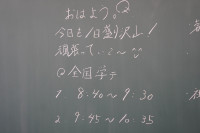 おはよう。
今日も1日盛り沢山!
頑張っていこ〜
@全国学テ
1 8:40〜9:30
2 9:45〜10:35